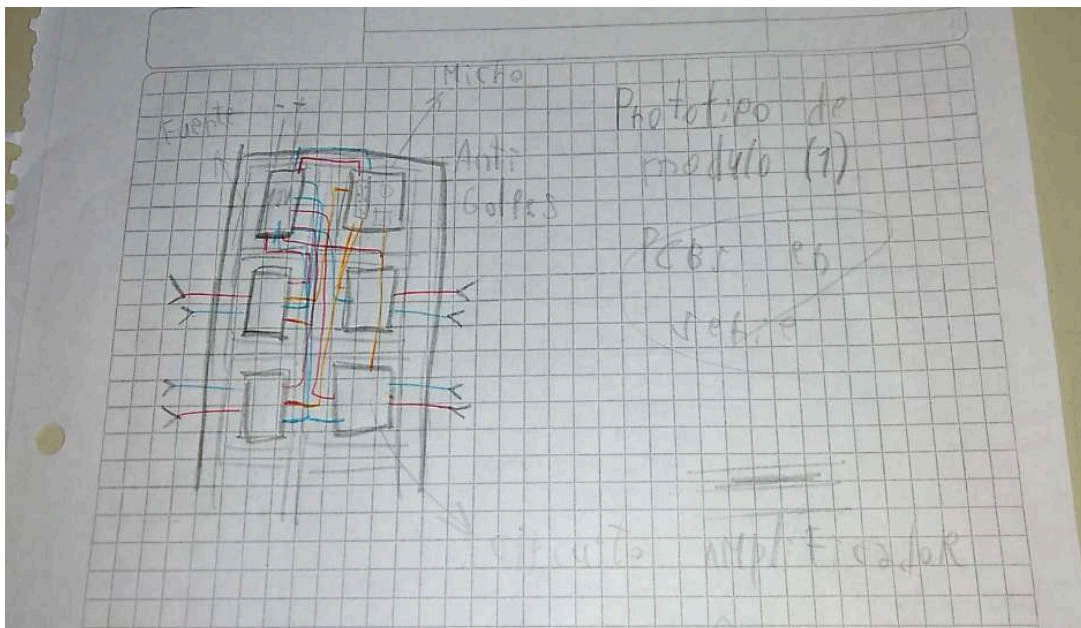 Micro
Fuente - +
Anti
Golpes
Prototipo de
modulo (1)
PCBs en
serie
circuito Amplificador